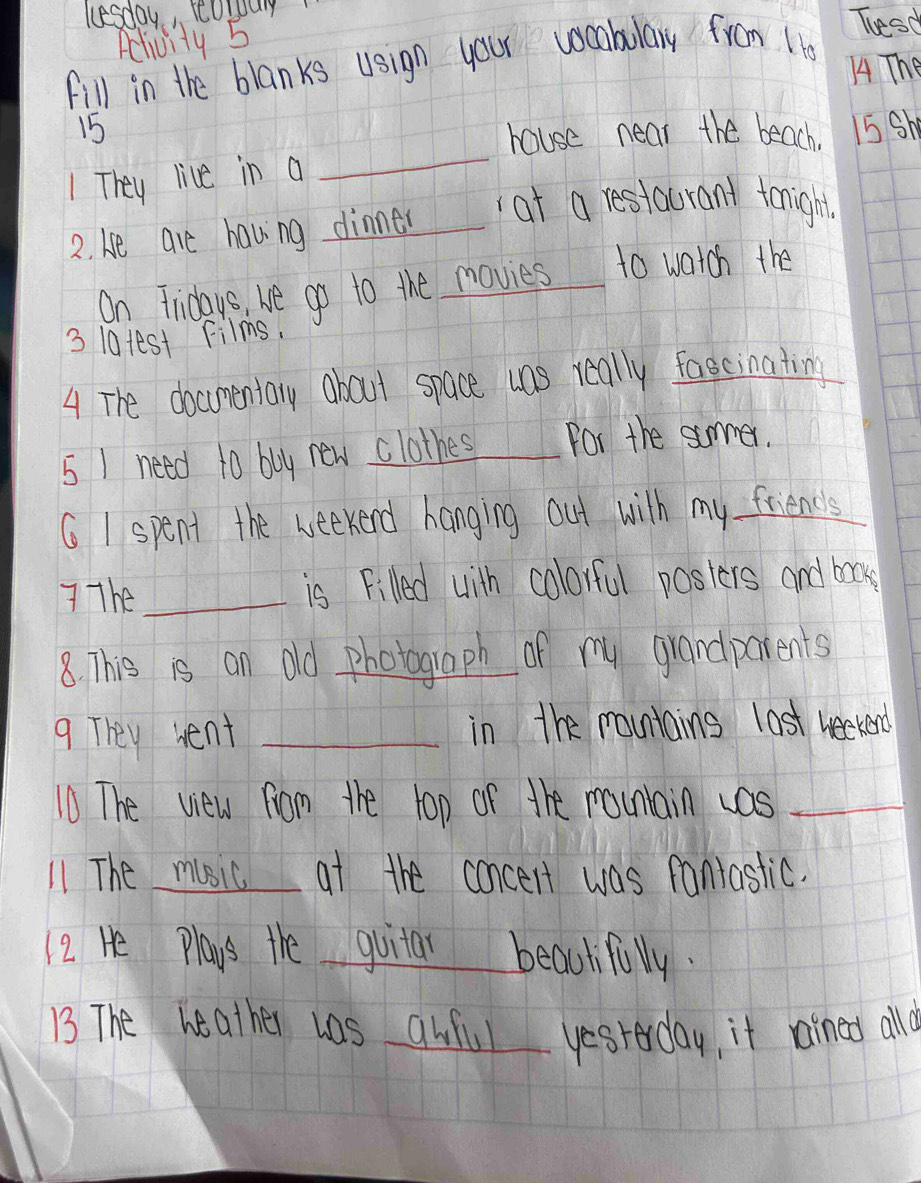 Tuesday,
Activity 5
Fill in the blanks usign your vocabulary from 1 to
15
1 They live in a ______ house near the beach.
2. We are having dinner at a restaurant tonight.
On Fridays, we go to the movies to watch the
3 latest films.
4 The documentary about space was really fascinating
5 I need to buy new clothes for the summer.
6 I spent the weekend hanging out with my friends
7 The ______ is filled with colorful posters and books
8. This is an old photograph of my grandparents
9 They went ______ in the mountains last weekend
10 The view from the top of the mountain was ______
11 The music at the concert was fantastic.
12 He plays the guitar beautifully.
13 The weather was awful yesterday, it rained all d
Tuesd
14 The
15 Sh